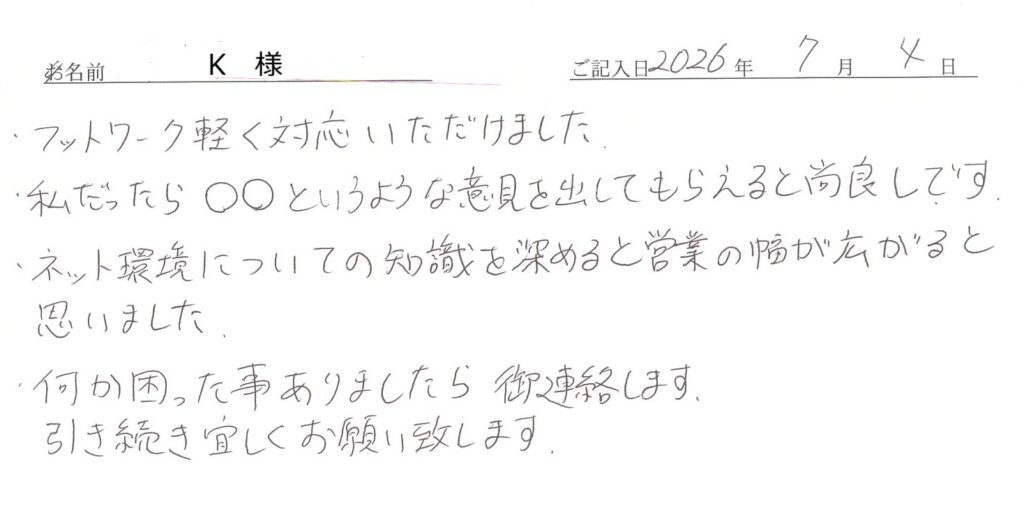 お名前 K 様 ご記入日2026年 7月 4日
・フットワーク軽く対応いただけました.
・私だったら ○○というような意見を出してもらえると尚良しです.
・ネット環境についての知識を深めると営業の幅が広がると
思いました.
・何か困った事ありましたら 御連絡します.
引き続き宜しくお願い致します.